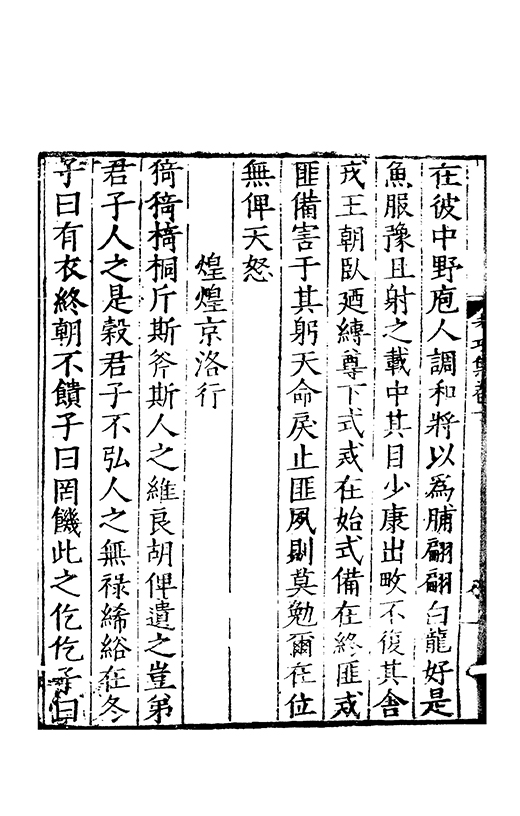 在彼中野庖人調和將以爲脯翩翩白龍好是
魚服豫且射之載中其目少康出畋不復其舍
戎王朝臥廼縛尊下式戒在始式備在終匪戒
匪備害于其躬天命戾止匪夙則莫勉爾在位
無俾天怒
煌煌京洛行
猗猗椅桐斤斯斧斯人之維良胡俾遺之豈弟
君子人之是榖君子不弘人之無祿絺綌在冬
子曰有衣終朝不饋子曰罔饑此之仡仡子曰